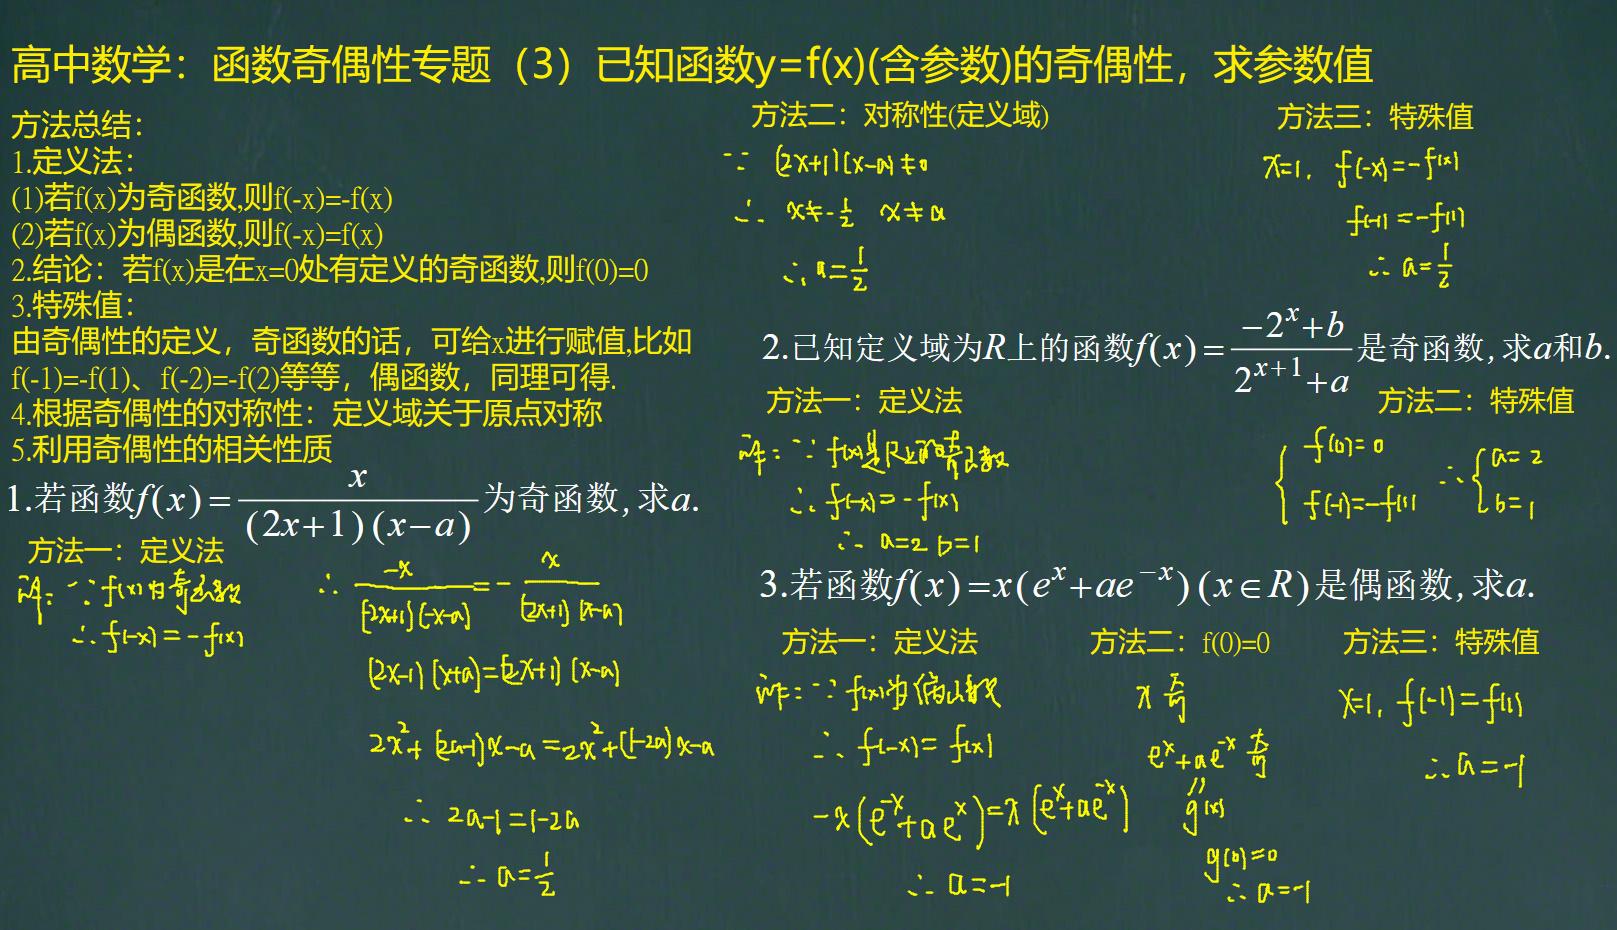 高中数学：函数奇偶性专题（3）已知函数y=f(x)(含参数)的奇偶性，求参数值
方法总结：
1.定义法：
(1)若f(x)为奇函数,则f(-x)=-f(x)
(2)若f(x)为偶函数,则f(-x)=f(x)
2.结论：若f(x)是在x=0处有定义的奇函数,则f(0)=0
3.特殊值：
由奇偶性的定义，奇函数的话，可给x进行赋值,比如
f(-1)=-f(1)、f(-2)=-f(2)等等，偶函数，同理可得.
4.根据奇偶性的对称性：定义域关于原点对称
5.利用奇偶性的相关性质
1.若函数f(x)=x/((2x+1)(x-a))为奇函数,求a.
方法一：定义法
解：∵f(x)为奇函数
∴f(-x)=-f(x)
∴ -x/([-2x+1)(-x-a)) = - x/((2x+1)(x-a))
(2x-1)(x+a)=(2x+1)(x-a)
2x²+(2a-1)x-a=2x²+(1-2a)x-a
∴ 2a-1=1-2a
∴ a=1/2
方法二：对称性(定义域)
∵ (2x+1)(x-a)≠0
∴ x≠-1/2 x≠a
∴ a=1/2
方法三：特殊值
x=1, f(-x)=-f(x)
f(-1)=-f(1)
∴ a=1/2
2.已知定义域为R上的函数f(x)=(-2^x+b)/(2^(x+1)+a)是奇函数,求a和b.
方法一：定义法
解：∵ f(x)是R上的奇函数
∴ f(-x)=-f(x)
∴ a=2 b=1
方法二：特殊值
{ f(0)=0
f(-1)=-f(1)
∴ { a=2
b=1
3.若函数f(x)=x(e^x+ae^-x)(x∈R)是偶函数,求a.
方法一：定义法
解：∵ f(x)为偶函数
∴ f(-x)=f(x)
-x(e^-x+ae^x)=x(e^x+ae^-x)
∴ a=-1
方法二：f(0)=0
x 奇
e^x+ae^-x 奇
g(x)
g(0)=0
∴ a=-1
方法三：特殊值
x=1, f(-1)=f(1)
∴ a=-1